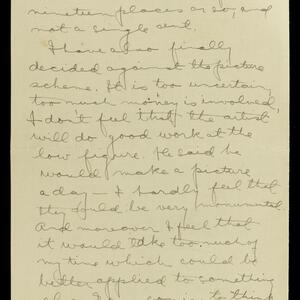 nineteen places or so, and
not a single cent.
I have also finally
decided against the picture
scheme. It is too uncertain,
too much money is involved,
I don't feel that the artist
will do good work at the
low figure. He said he
would make a picture
a day — I hardly feel that
they could be very monumental
And moreover I feel that
it would take too much of
my time which could be
better applied to something